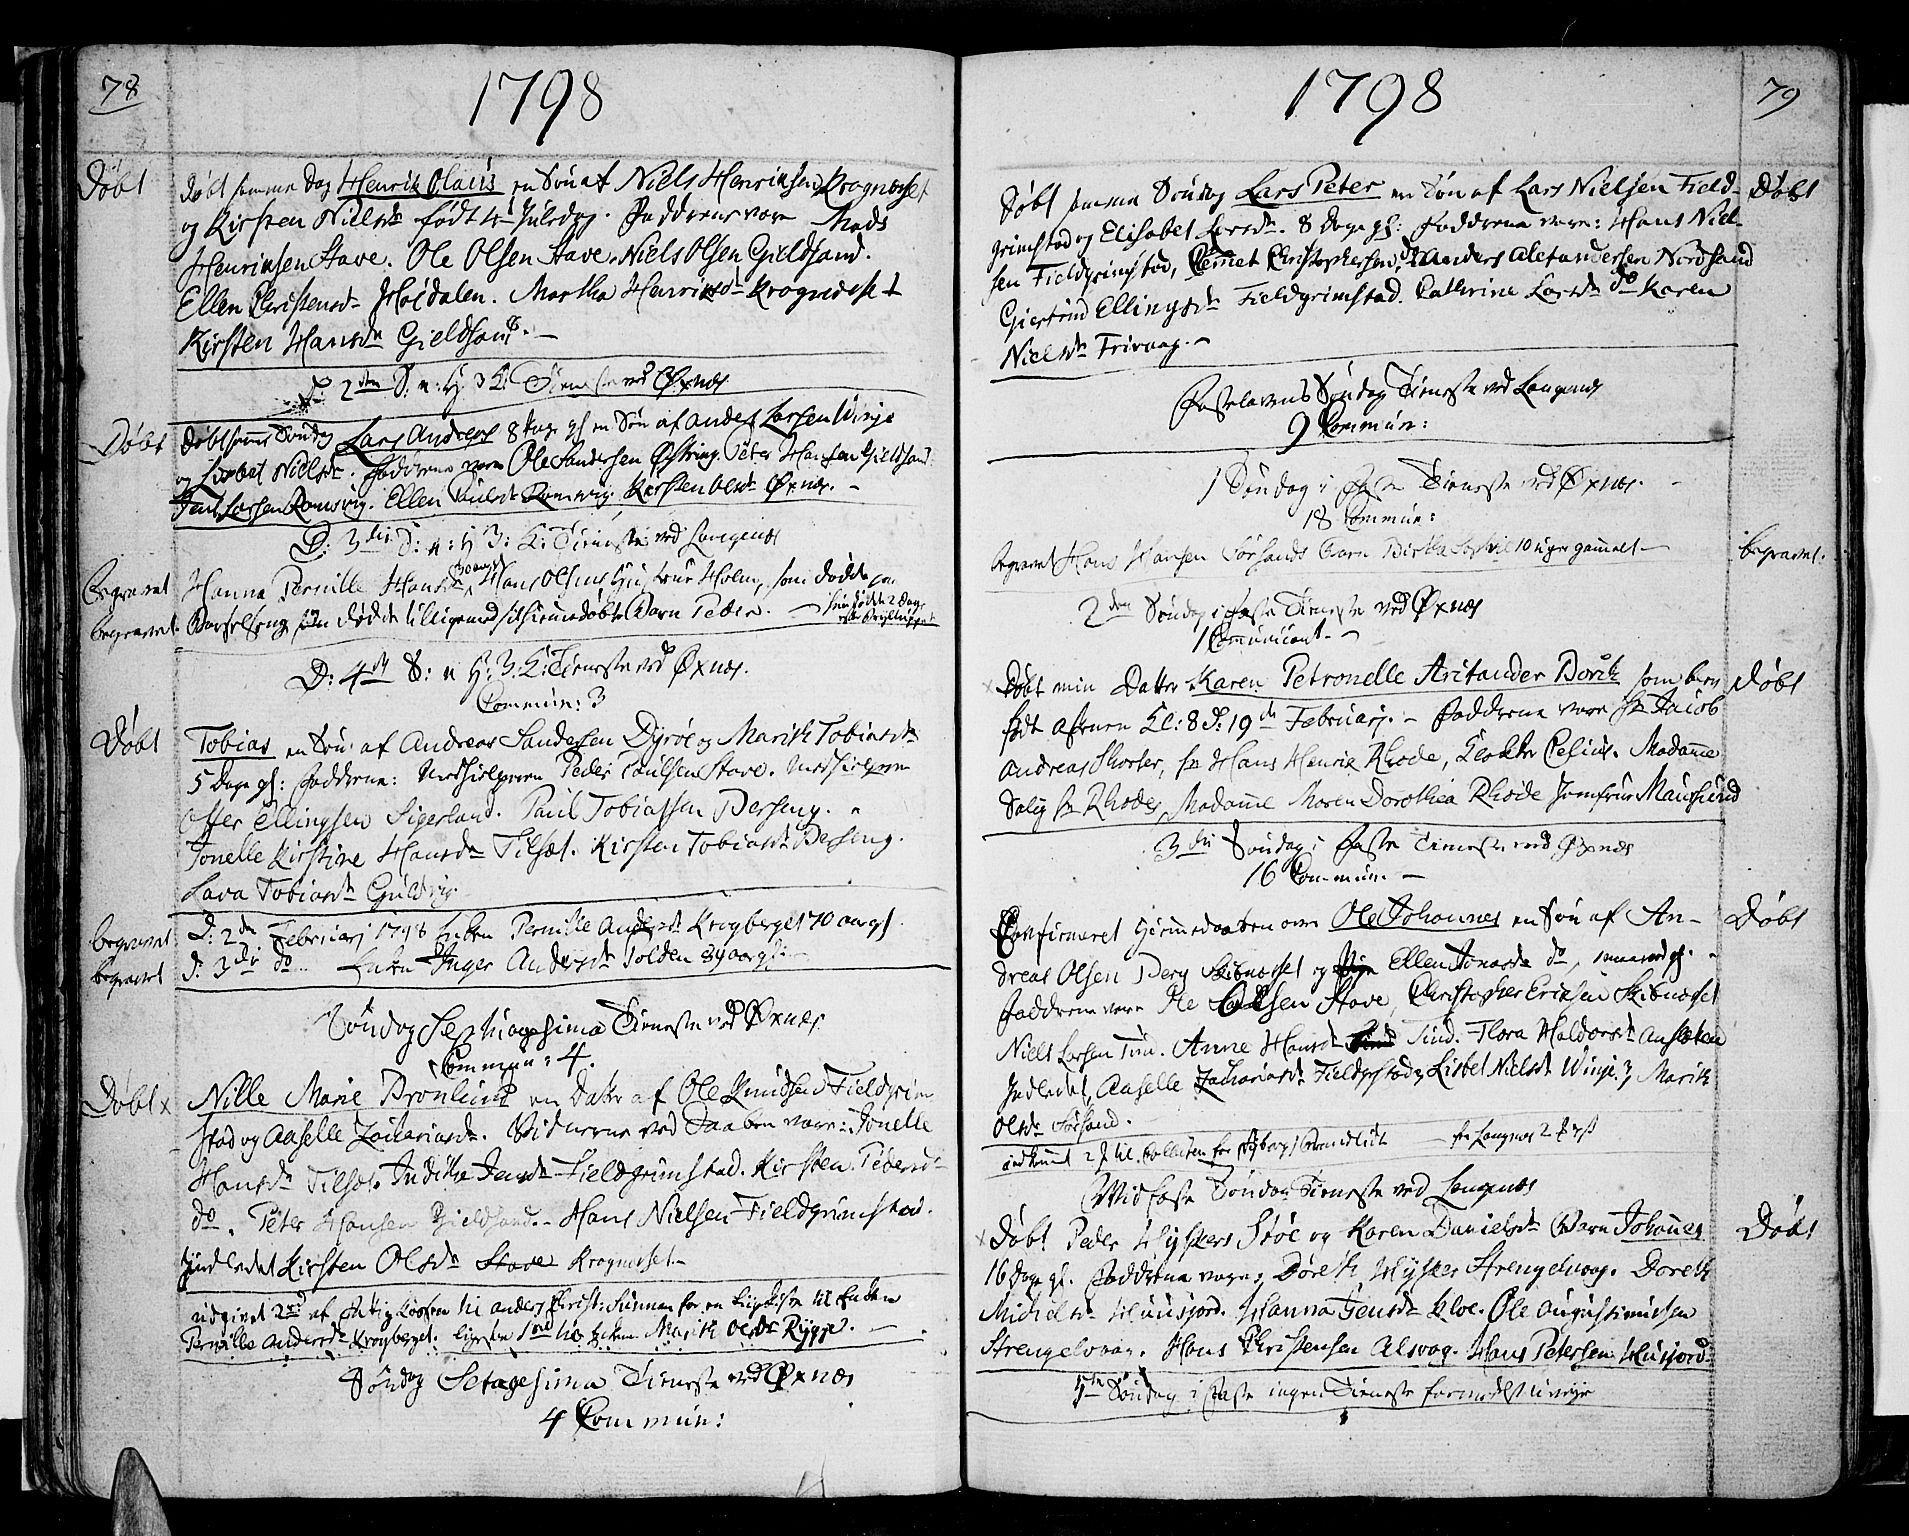 78
1798
Døbt
Døbt samme Dag Henrik Olaus en Søn af Niels Henriksen Krognæsset
og Kirsten Nillsdr født 4de Juledag. Faddrene vare Mads
Henriksen Stave. Ole Olsen Stave. Niels Olsen Gieldsand.
Ellen Christensdr Høidalen. Martha Henriksdr Krognæset
Kirsten Hansdr Gieldsand. —
D: 2den S: n: H 3 K: Tieneste ved Øxnæs
Døbt
Døbt samme Søndag Lars Andreas 8 Dage gl en Søn af Anders Larsen Winje
og Lisbet Nielsdr. Faddrene vare Ole Sandersen Østring. Peter Hansen Gieldsand.
Jens Larsen Romsvig. Ellen Paulsdr Romsvig. Kirsten Olsdr Øxnæs. —
D: 3die S: n: H 3: K: Tieneste ved Langenæs
Begravet
Hanna Pernille Hansdr 30 aar Hans Olsens Hustrue Holm, som døde paa
begravet
Barselseng døde tilligemed sit hiemmedøbte Barn Peder. —
D: 4de S: n H: 3: K: Tieneste ved Øxnæs.
Commun: 3
Døbt
Tobias en Søn af Andreas Sandersen Dyrøe og Marith Tobiasdr
5 Dage gl: Faddrene: Medhielperen Peder Paulsen Stave. Medhielperen
Offer Ellingsen Sigerland. Paul Tobiassen Berseng.
Jonelle Kirstine Hansdr Tilsæt. Kirsten Tobiasdr Berseng.
Lava Tobiasdr Guldvig.
begravet
D: 2den Februarj 1798 Enken Pernille Andersdr Krogberget 70 aar gl.
begravet
D: 3die do Enken Inger Andersdr Tolden 89 aar gl: —
Søndag Septuagesima Tieneste ved Øxnæs
Commun: 4.
Døbt x
Nille Marie Bronlund en Datter af Ole Knudsen Fieldgrim
stad og Aaselle Zachariasdr. Vidnerne ved Daaben vare: Jonelle
Hansdr Tilsæt. Inditha Jensdr Fieldgrimstad. Kirsten Pedersdr
do. Peter Hansen Gieldsand. Hans Nielsen Fieldgrimstad.
Indledet Kirsten Olsdr Stave Krognæset —
udgivet 2rd af Fattig Cassen til Anders Christ: Sunnan for en Liigkiste til Enken
Pernille Andersdr Krogberget. ligesaa 1rd til Enken Marith Olsdr Rygge. —
Søndag Sexagesima Tieneste ved Øxnæs
4 Commun:
79
1798
Døbt
Døbt samme Søndag Lars Peter en Søn af Lars Nielsen Field-
grimstad og Elisabet Larsdr. 8 Dage gl: Faddrene vare: Hans Niel-
sen Fieldgrimstad, Bernet Christophersen do Anders Alexandersen Nordsand
Giertrud Ellingsdr Fieldgrimstad. Cathrine Larsdr do Karen
Nielsdr Frivaag. —
Fastelavens Søndag Tieneste ved Langenæs
9 Commun:
1 Søndag i Faste Tieneste ved Øxnæs. —
18 Commun:
begravet.
begravet Hans Hansen Sørsands Barn Birthe 10 uger gammelt —
2den Søndag i Faste Tieneste ved Øxnæs
1 Comunicant. —
Døbt
x Døbt min Datter Karen Petronelle Aritander Borck som blev
født aftenen Kl: 8 D: 19de Februarj. — Faddrene vare Hr Jacob
Andreas Skorter, Hr Hans Henrik Rhode, Klokker Celius. Madame
Salig Hr Rhodes, Madame Maren Dorothea Rhode Jomfrue Maursund
3die Søndag i Faste Tieneste ved Øxnæs
16 Commun. —
Døbt
Confirmeret Hiemmedaaben over Ole Johannes en Søn af An-
dreas Olsen Berg Skibnæsset og Ellen Jonasdr do, 1 maaned gl.
Faddrene vare Ole Olsen Stave, Christopher Eriksen Skibnæset
Niels Larsen Tind. Anne Hansdr Tind. Flora Haldorsdr Anstæten
Indledet, Aaselle Zachariasdr Fieldgrstad, Lisbet Nielsdr Winje, Marith
Olsdr Sørsand.
indkommet 2 til Collecten for Nyborg — fra Langenæs 2
Midfaste Søndag Tieneste ved Langenæs
Døbt
x Døbt Peder Hyskers Støe og Karen Danielsdr Barn Johannes
16 Dage gl. Faddrene vare: Doreth Hysker Strengelvaag. Doreth
Michelsdr Huusjord. Hanna Jensdr Kloe. Ole Augustinussen
Strengelvaag. Hans Christensen Alsvog. Hans Petersen Husjord.
5te Søndag i Faste ingen Tieneste formedelst Uveyr